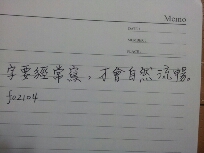 Memo
字要經常寫，才會自然流暢。
fo2104